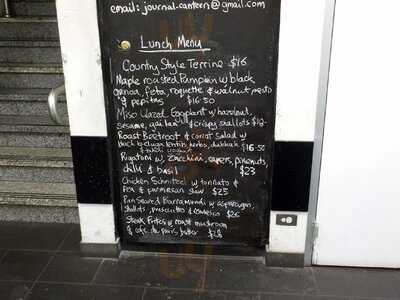 email: journal.canteen@gmail.com
Lunch Menu
Country Style Terrine $16
Maple roasted Pumpkin w black
quinoa, feta, roquette & walnut pesto
& pepitas $16.50
Miso Glazed Eggplant w hazelnut,
sesame, gai lan & crispy shallots $18
Roast Beetroot & carrot Salad w
black beluga lentils, herbs, dukkah $16.50
& yoghurt
Rigatoni w, zucchini, capers, pinenuts,
chilli & basil $23
Chicken Schnitzel w tomato &
Pea & parmesan slaw $25
Pan Seared Barramundi w asparagus,
shallots, prosciutto & $26
Steak Frites w roast mushroom
& cafe de paris butter $28